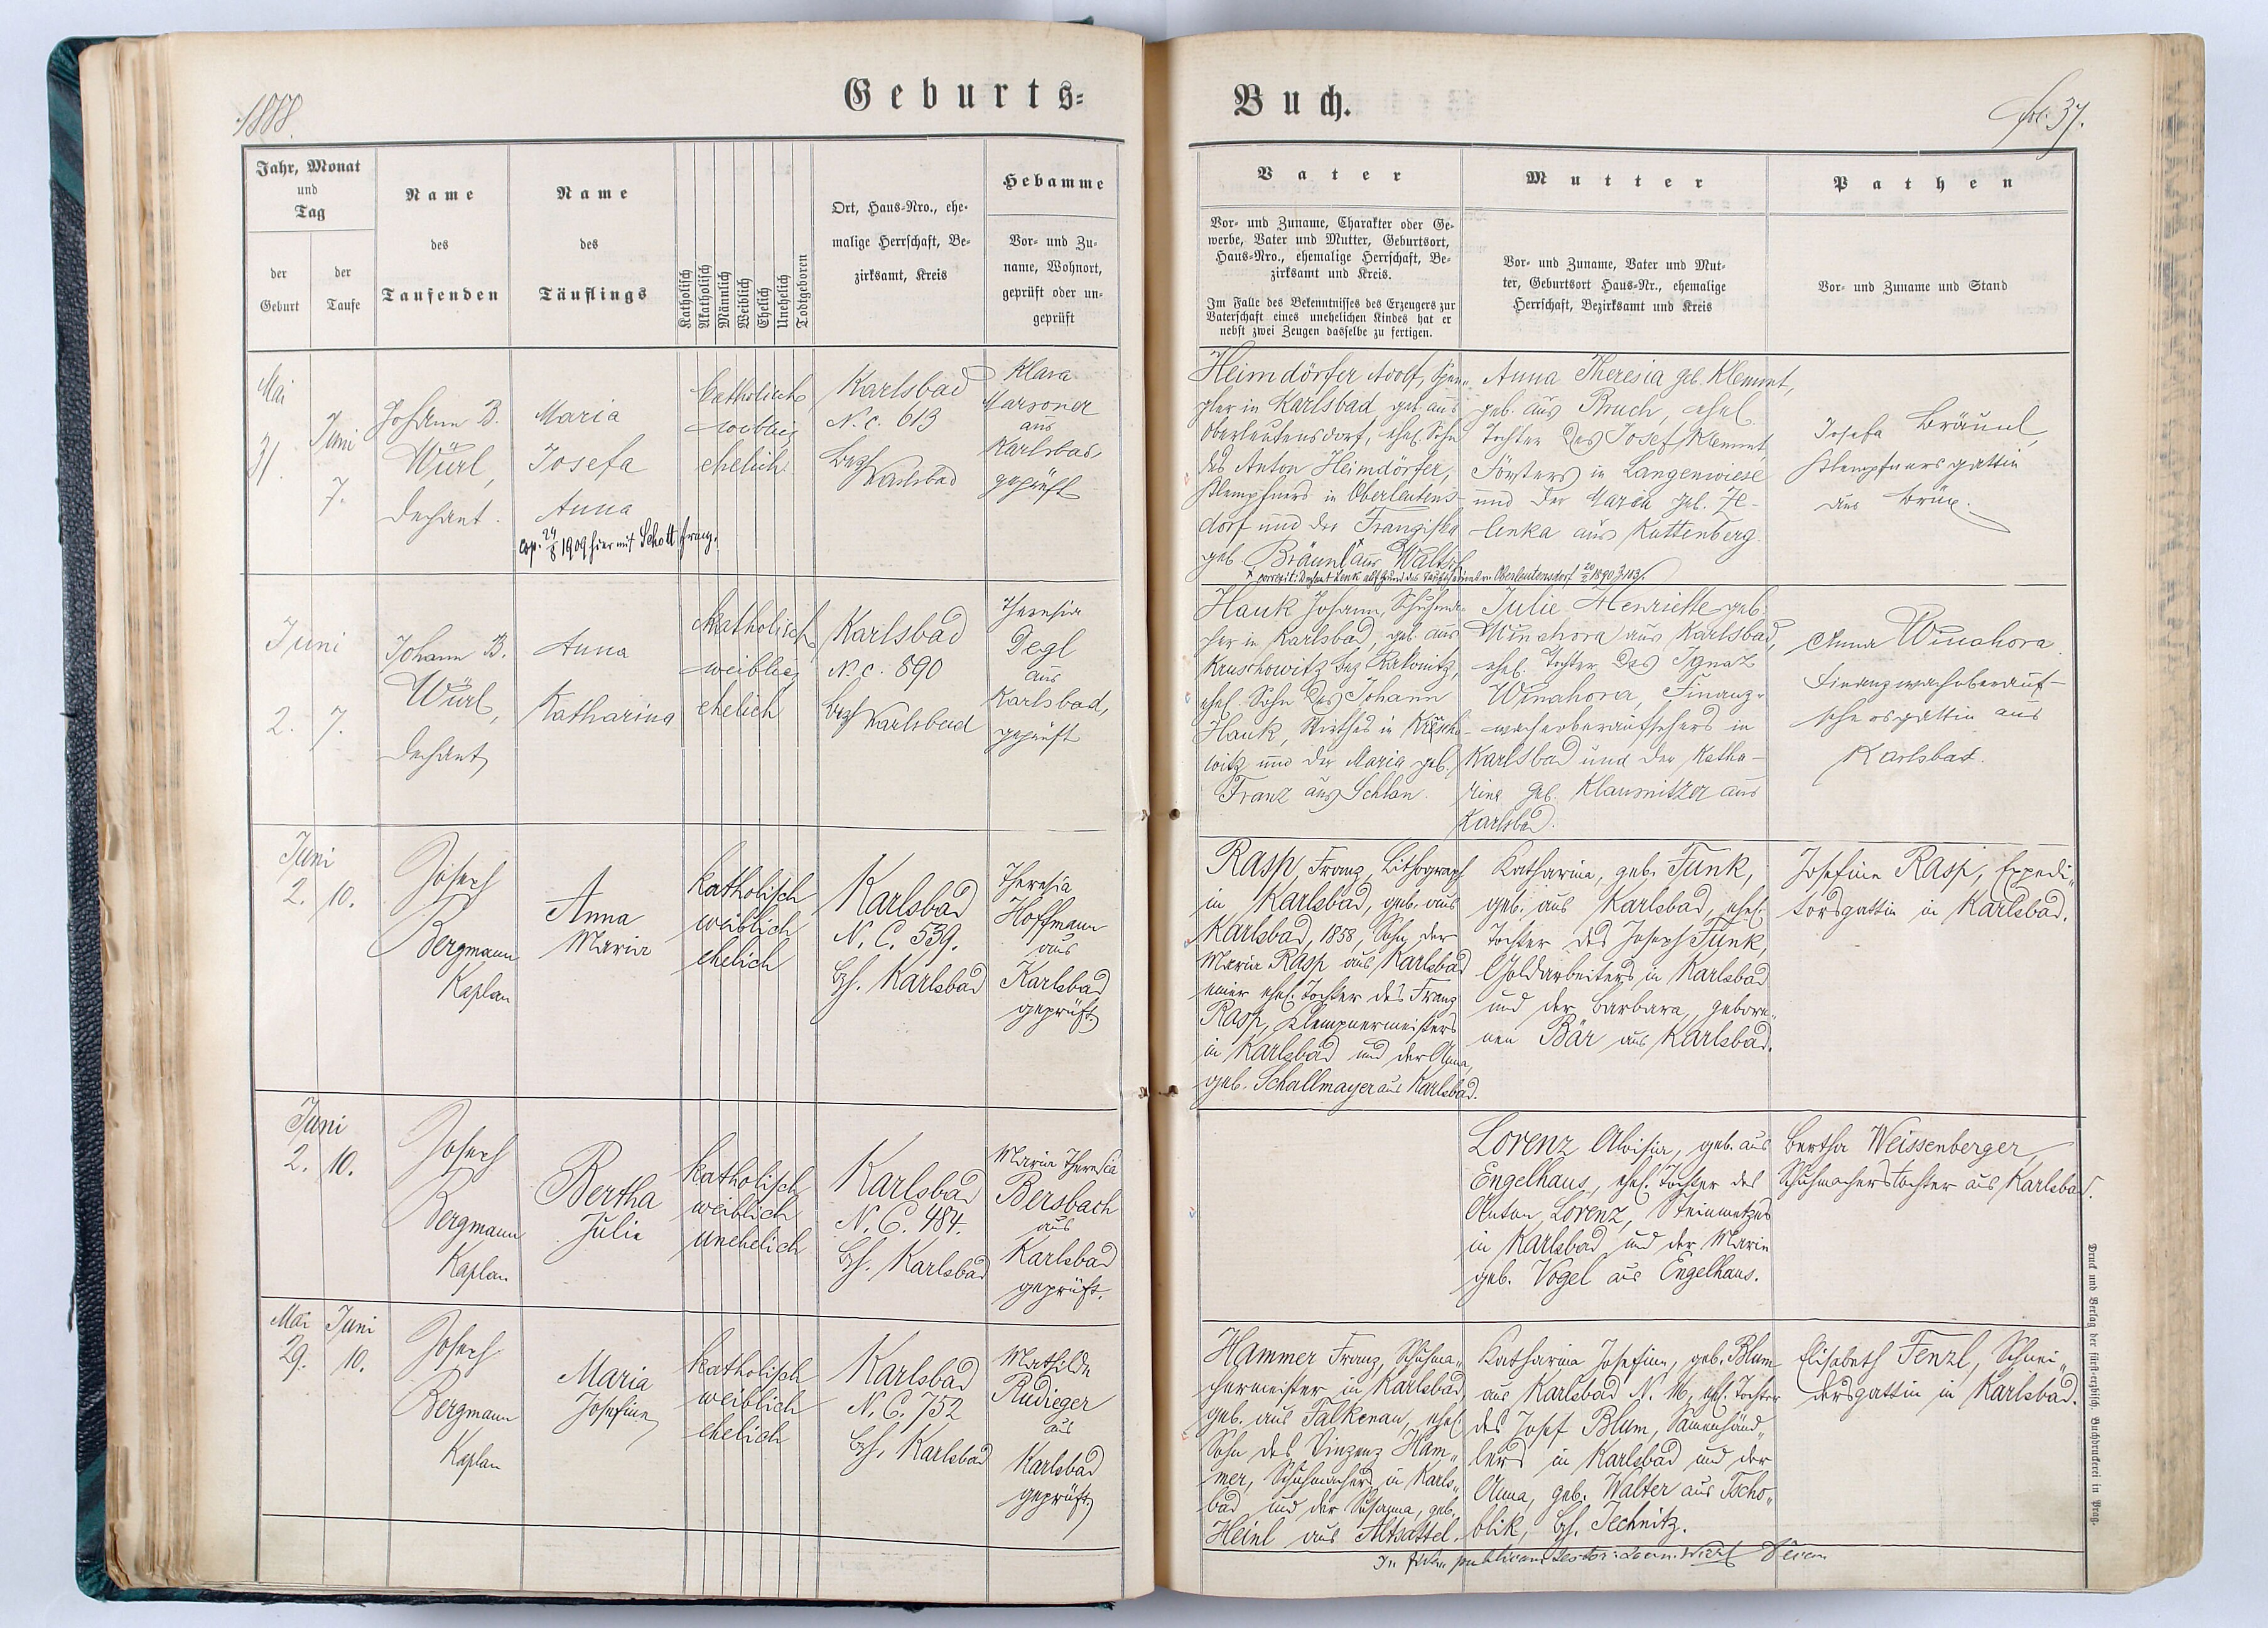 1888.
Geburts=
Jahr, Monat
und
Tag
der
Geburt
der
Taufe
Name
des
Taufenden
Name
des
Täuflings
Katholisch
Akatholisch
Männlich
Weiblich
Ehelich
Unehelich
Todtgeboren
Ort, Haus=Nro., ehe=
malige Herrschaft, Be=
zirksamt, Kreis
Hebamme
Vor= und Zu=
name, Wohnort,
geprüft oder un=
geprüft
Mai
31.
Juni
7.
Johann B.
Würl,
Dechant.
Maria
Josefa
Anna
cop. 24/8 1909 hier mit Schott Franz.
katholisch
weiblich
ehelich
Karlsbad
N. c. 613
Bezh Karlsbad
Klara
Marsoner
aus
Karlsbad
geprüft
Juni
2. 7.
Johann B.
Würl,
Dechant
Anna
Katharina
katholisch
weiblich
ehelich
Karlsbad
N. c. 890
Bezh Karlsbad
Theresia
Degl
aus
Karlsbad,
geprüft
Juni
2. 10.
Joseph
Bergmann
Kaplan
Anna
Maria
katholisch
weiblich
ehelich
Karlsbad
N. C. 539.
Bzh. Karlsbad
Theresia
Hoffmann
aus
Karlsbad
geprüft
Juni
2. 10.
Joseph
Bergmann
Kaplan
Bertha
Julie
katholisch
weiblich
unehelich
Karlsbad
N. C. 484.
Bzh. Karlsbad
Maria Theresia
Bersbach
aus
Karlsbad
geprüft.
Mai Juni
29. 10.
Joseph
Bergmann
Kaplan
Maria
Josefine
katholisch
weiblich
ehelich
Karlsbad
N. C. 752
Bzh. Karlsbad
Mathilde
Rudieger
aus
Karlsbad
geprüft
Buch.
fol. 37.
Vater
Vor= und Zuname, Charakter oder Ge=
werbe, Vater und Mutter, Geburtsort,
Haus=Nro., ehemalige Herrschaft, Be=
zirksamt und Kreis.
Im Falle des Bekenntnisses des Erzeugers zur
Vaterschaft eines unehelichen Kindes hat er
nebst zwei Zeugen dasselbe zu fertigen.
Mutter
Vor= und Zuname, Vater und Mut=
ter, Geburtsort Haus=Nr., ehemalige
Herrschaft, Bezirksamt und Kreis
Pathen
Vor= und Zuname und Stand
Heimdörfer Adolf, Spen=
gler in Karlsbad, geb. aus
Oberleutensdorf, ehel. Sohn
des Anton Heimdörfer,
Klempfners in Oberleutens-
dorf und der Franziska
geb. Bräunl aus Waltsch
Anna Theresia geb. Klemnt,
geb. aus Bruch, ehel.
Tochter des Josef Klemnt,
Försters in Langenwiese
und der Maria geb. Ze-
lenka aus Kuttenberg.
Josefa Bräunl,
Klempfnersgattin
aus Brüx.
Hauk Johann, Schuhma-
cher in Karlsbad, geb. aus
Kruschowitz Bez Rakonitz,
ehel. Sohn des Johann
Hauk, Wirthes in Krusch-
witz und der Maria geb.
Franz aus Schlan.
Julie Henriette geb.
Winahora aus Karlsbad,
ehel. Tochter des Ignaz
Winahora, Finanz-
wachoberaufsehers in
Karlsbad und der Katha-
rina geb. Klausnitzer aus
Karlsbad.
Anna Winahora
Finanzwachoberauf-
sehersgattin aus
Karlsbad.
Rasp, Franz, Lithograph
in Karlsbad, geb. aus
Karlsbad, 1858, Sohn der
Maria Rasp aus Karlsbad
einer ehel. Tochter des Franz
Rasp, Klempnermeisters
in Karlsbad und der Anna,
geb. Schallmayer aus Karlsbad.
Katharina, geb. Funk,
geb. aus Karlsbad, ehel.
Tochter des Joseph Funk,
Goldarbeiters in Karlsbad
und der Barbara, gebore-
nen Bär aus Karlsbad.
Josefine Rasp, Expedi-
torsgattin in Karlsbad.
Lorenz Aloisia, geb. aus
Engelhaus, ehel. Tochter des
Anton Lorenz, Steinmetzes
in Karlsbad und der Maria
geb. Vogel aus Engelhaus.
Bertha Weissenberger,
Schuhmacherstochter aus Karlsbad.
Hammer Franz, Schuhma-
chermeister in Karlsbad,
geb. aus Falkenau, ehel.
Sohn des Vinzenz Ham-
mer, Schuhmachers in Karls-
bad und der Susanna, geb.
Heinl aus Altsattel.
Katharina Josefine, geb. Blum
aus Karlsbad N. 16, ehel. Tochter
des Josef Blum, Samenhänd-
lers in Karlsbad und der
Anna, geb. Walter aus Tscho-
blik, Bzh. Jechnitz.
Elisabeth Fenzl, Schnei-
dersgattin in Karlsbad.
Druck und Verlag der fürst-erzbisch. Buchdruckerei in Prag.